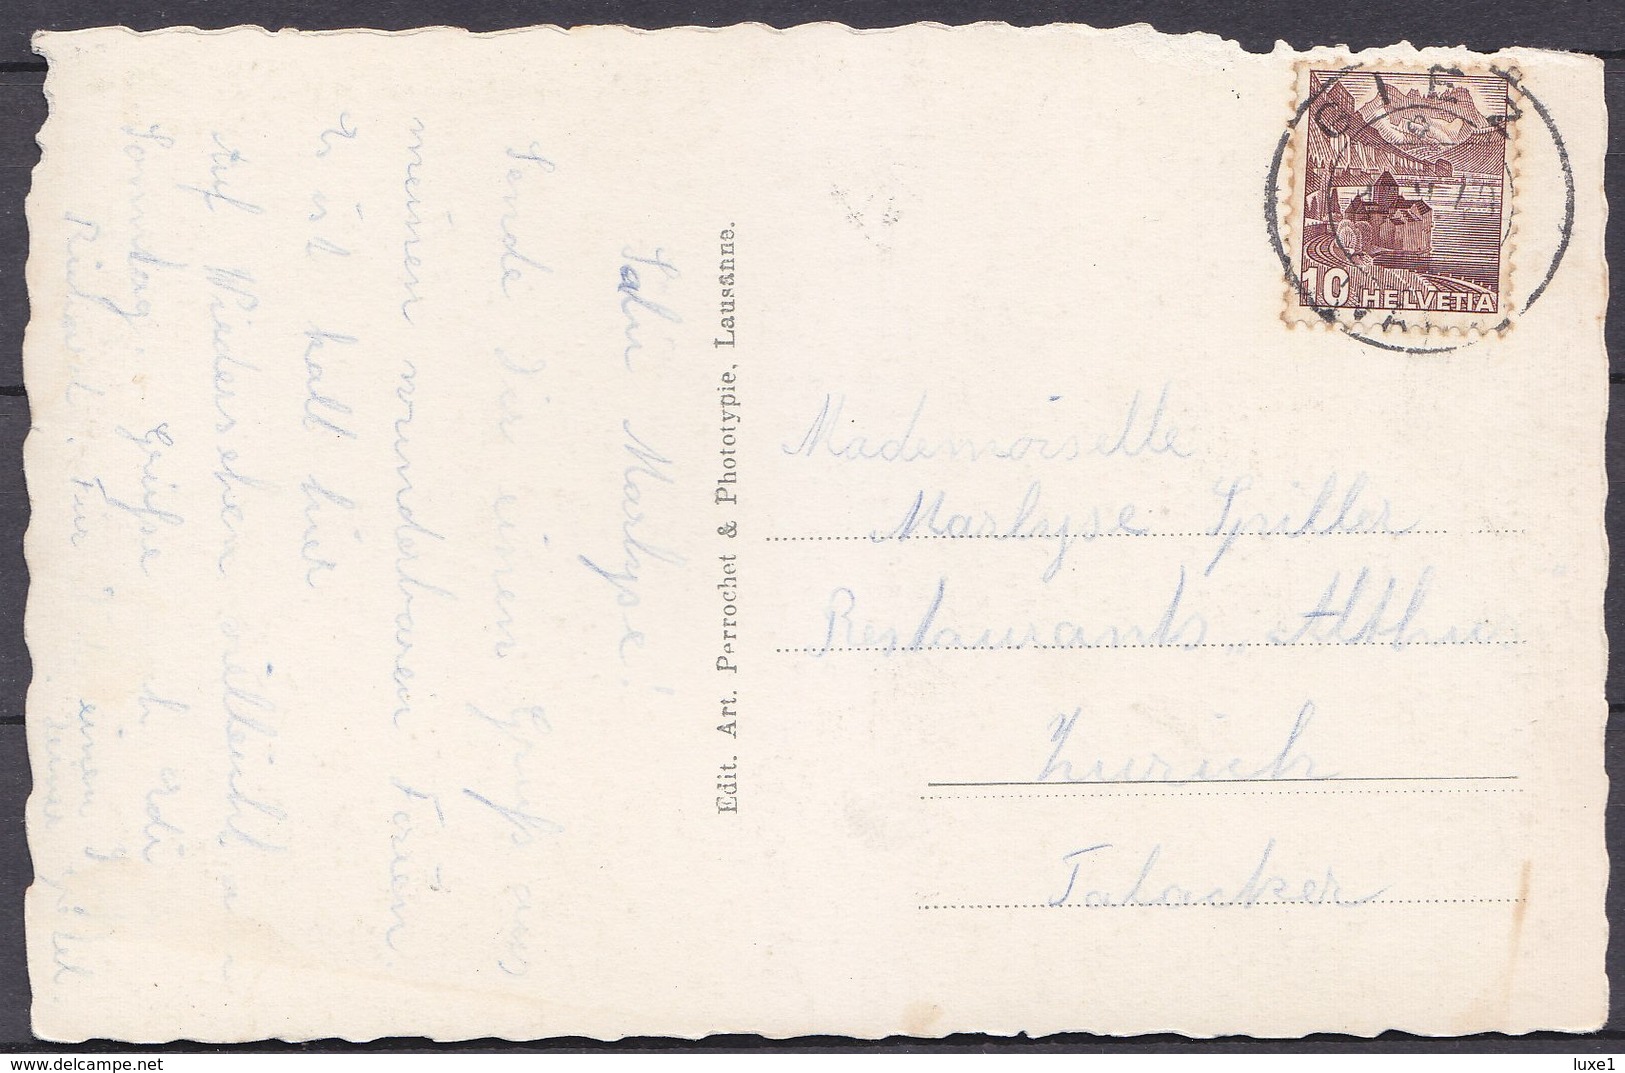 Salu Marlyse!
Sende Dir einen Gruss aus
meinen wunderbaren Ferien.
Es ist kalt hier
Auf Wiedersehen villeicht am
Sonntag. Grüsse
Richard. Für einen
Edit. Art. Perrochet & Phototypie, Lausanne.
10 HELVETIA
Mademoiselle
Marlyse Spiller
Restaurants
Zürich
Talacker
luxe1